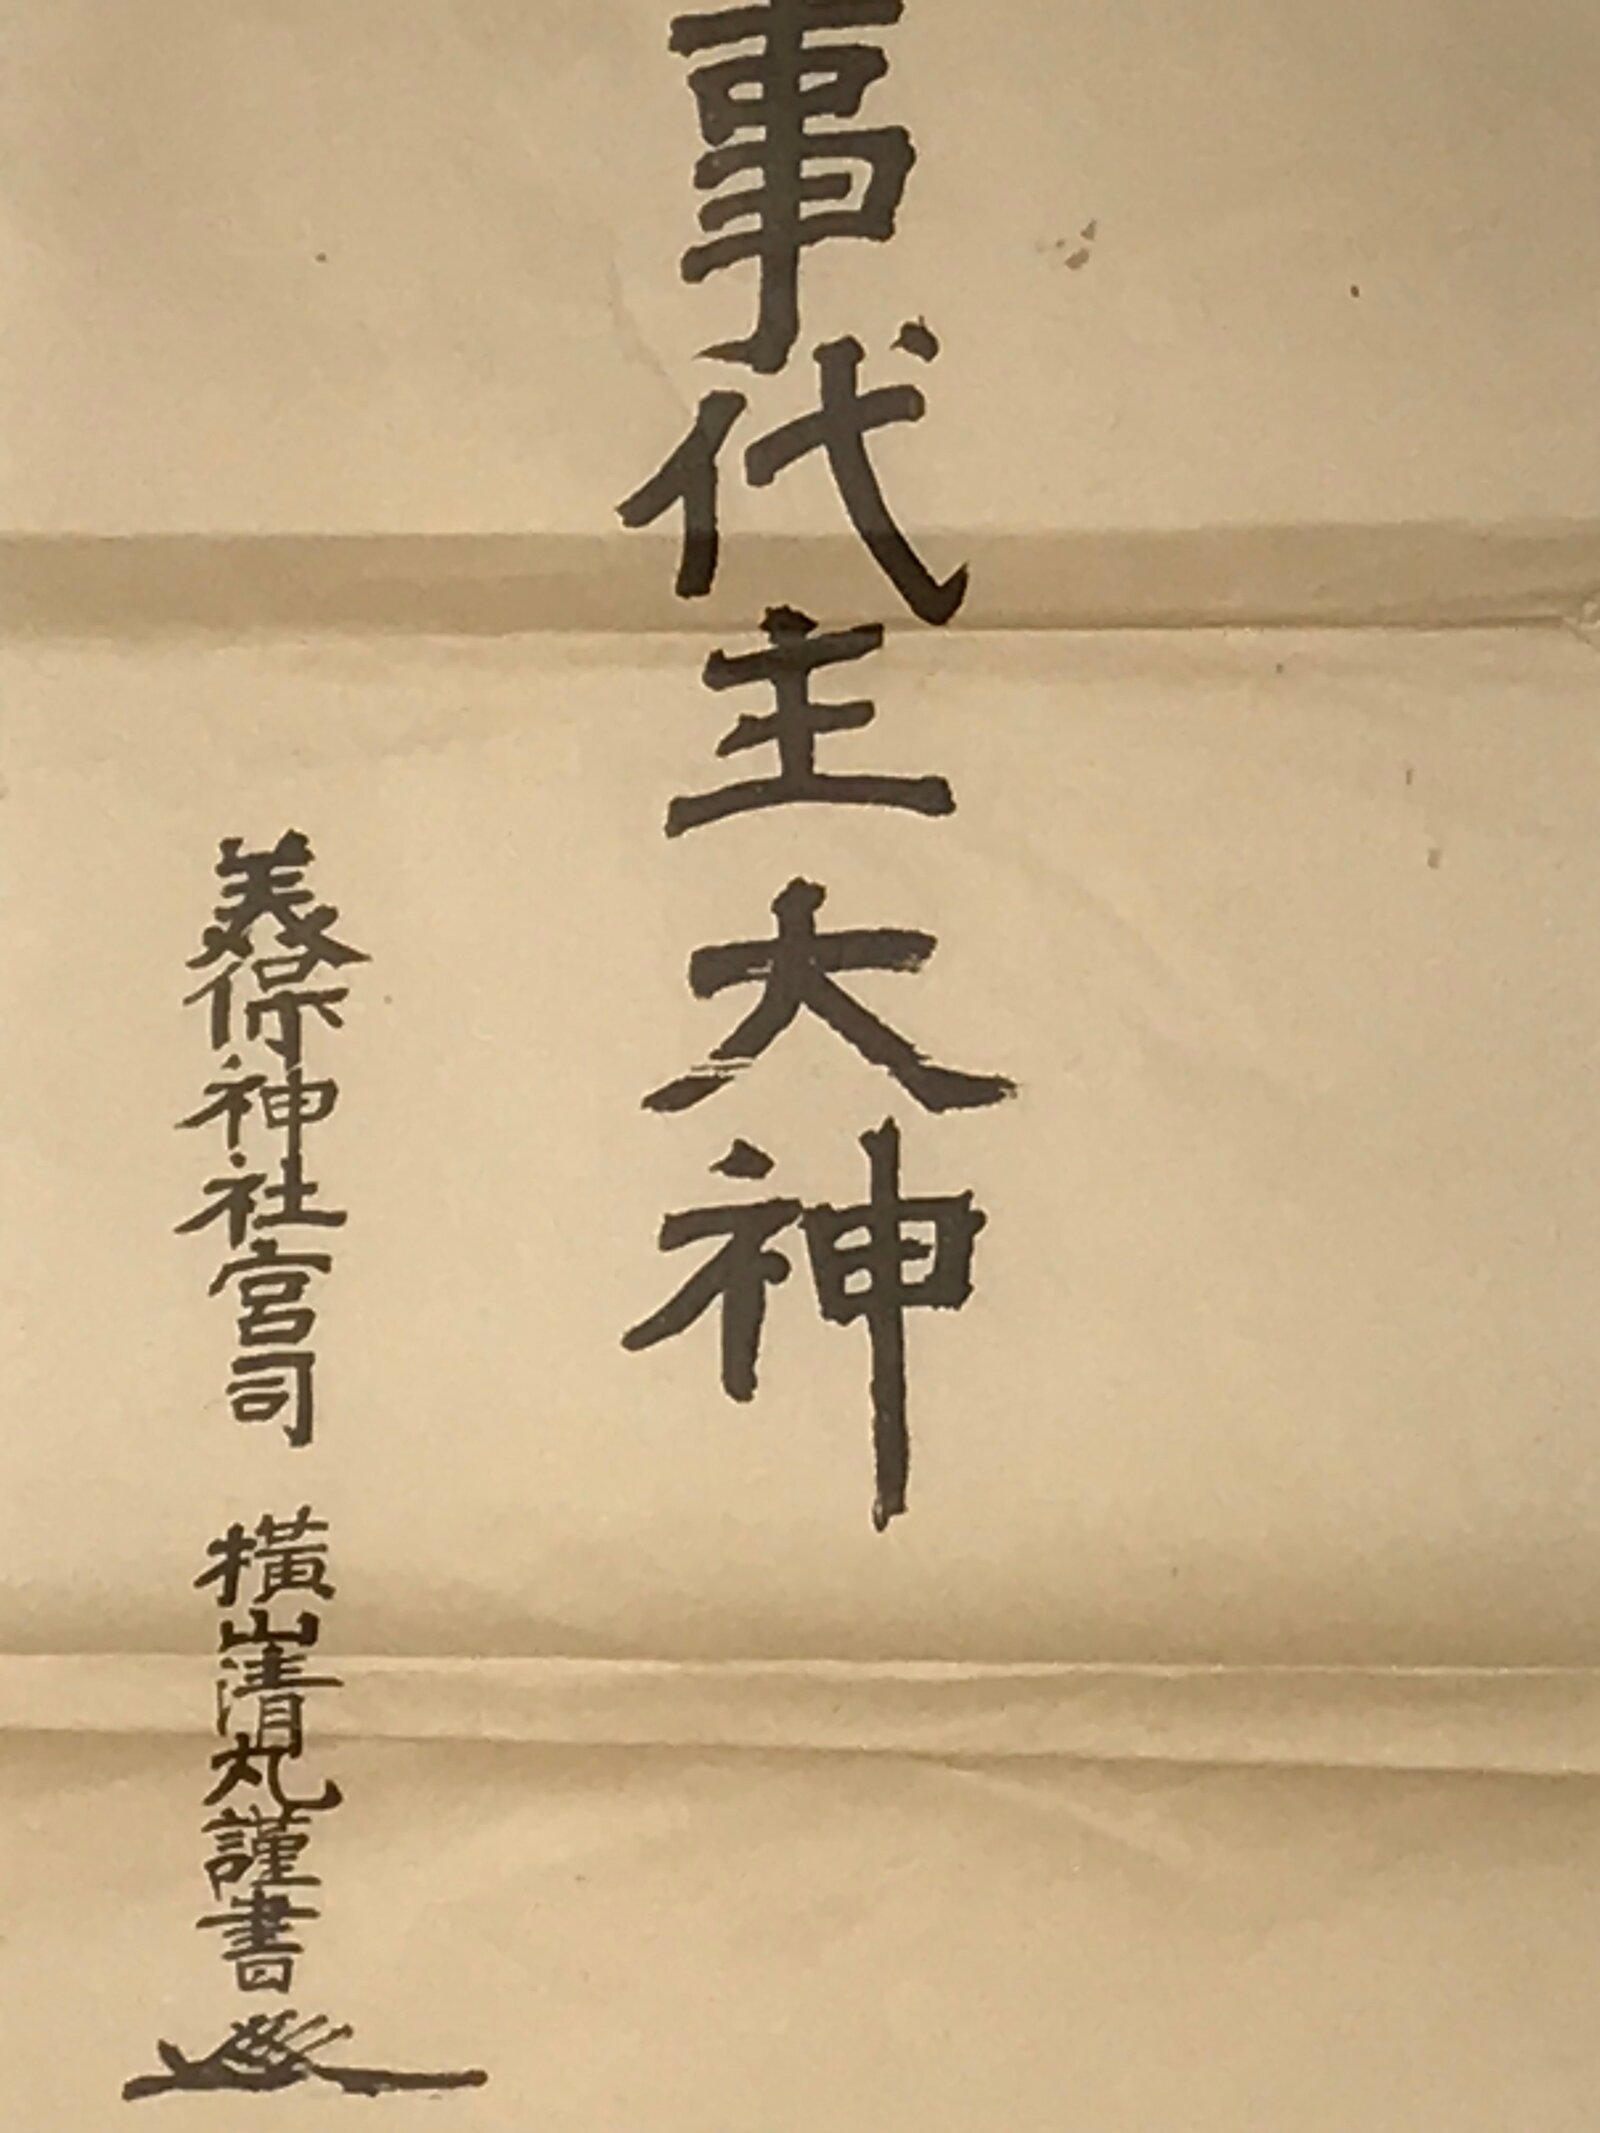 事代主大神
美保神社宮司 横山清丸謹書